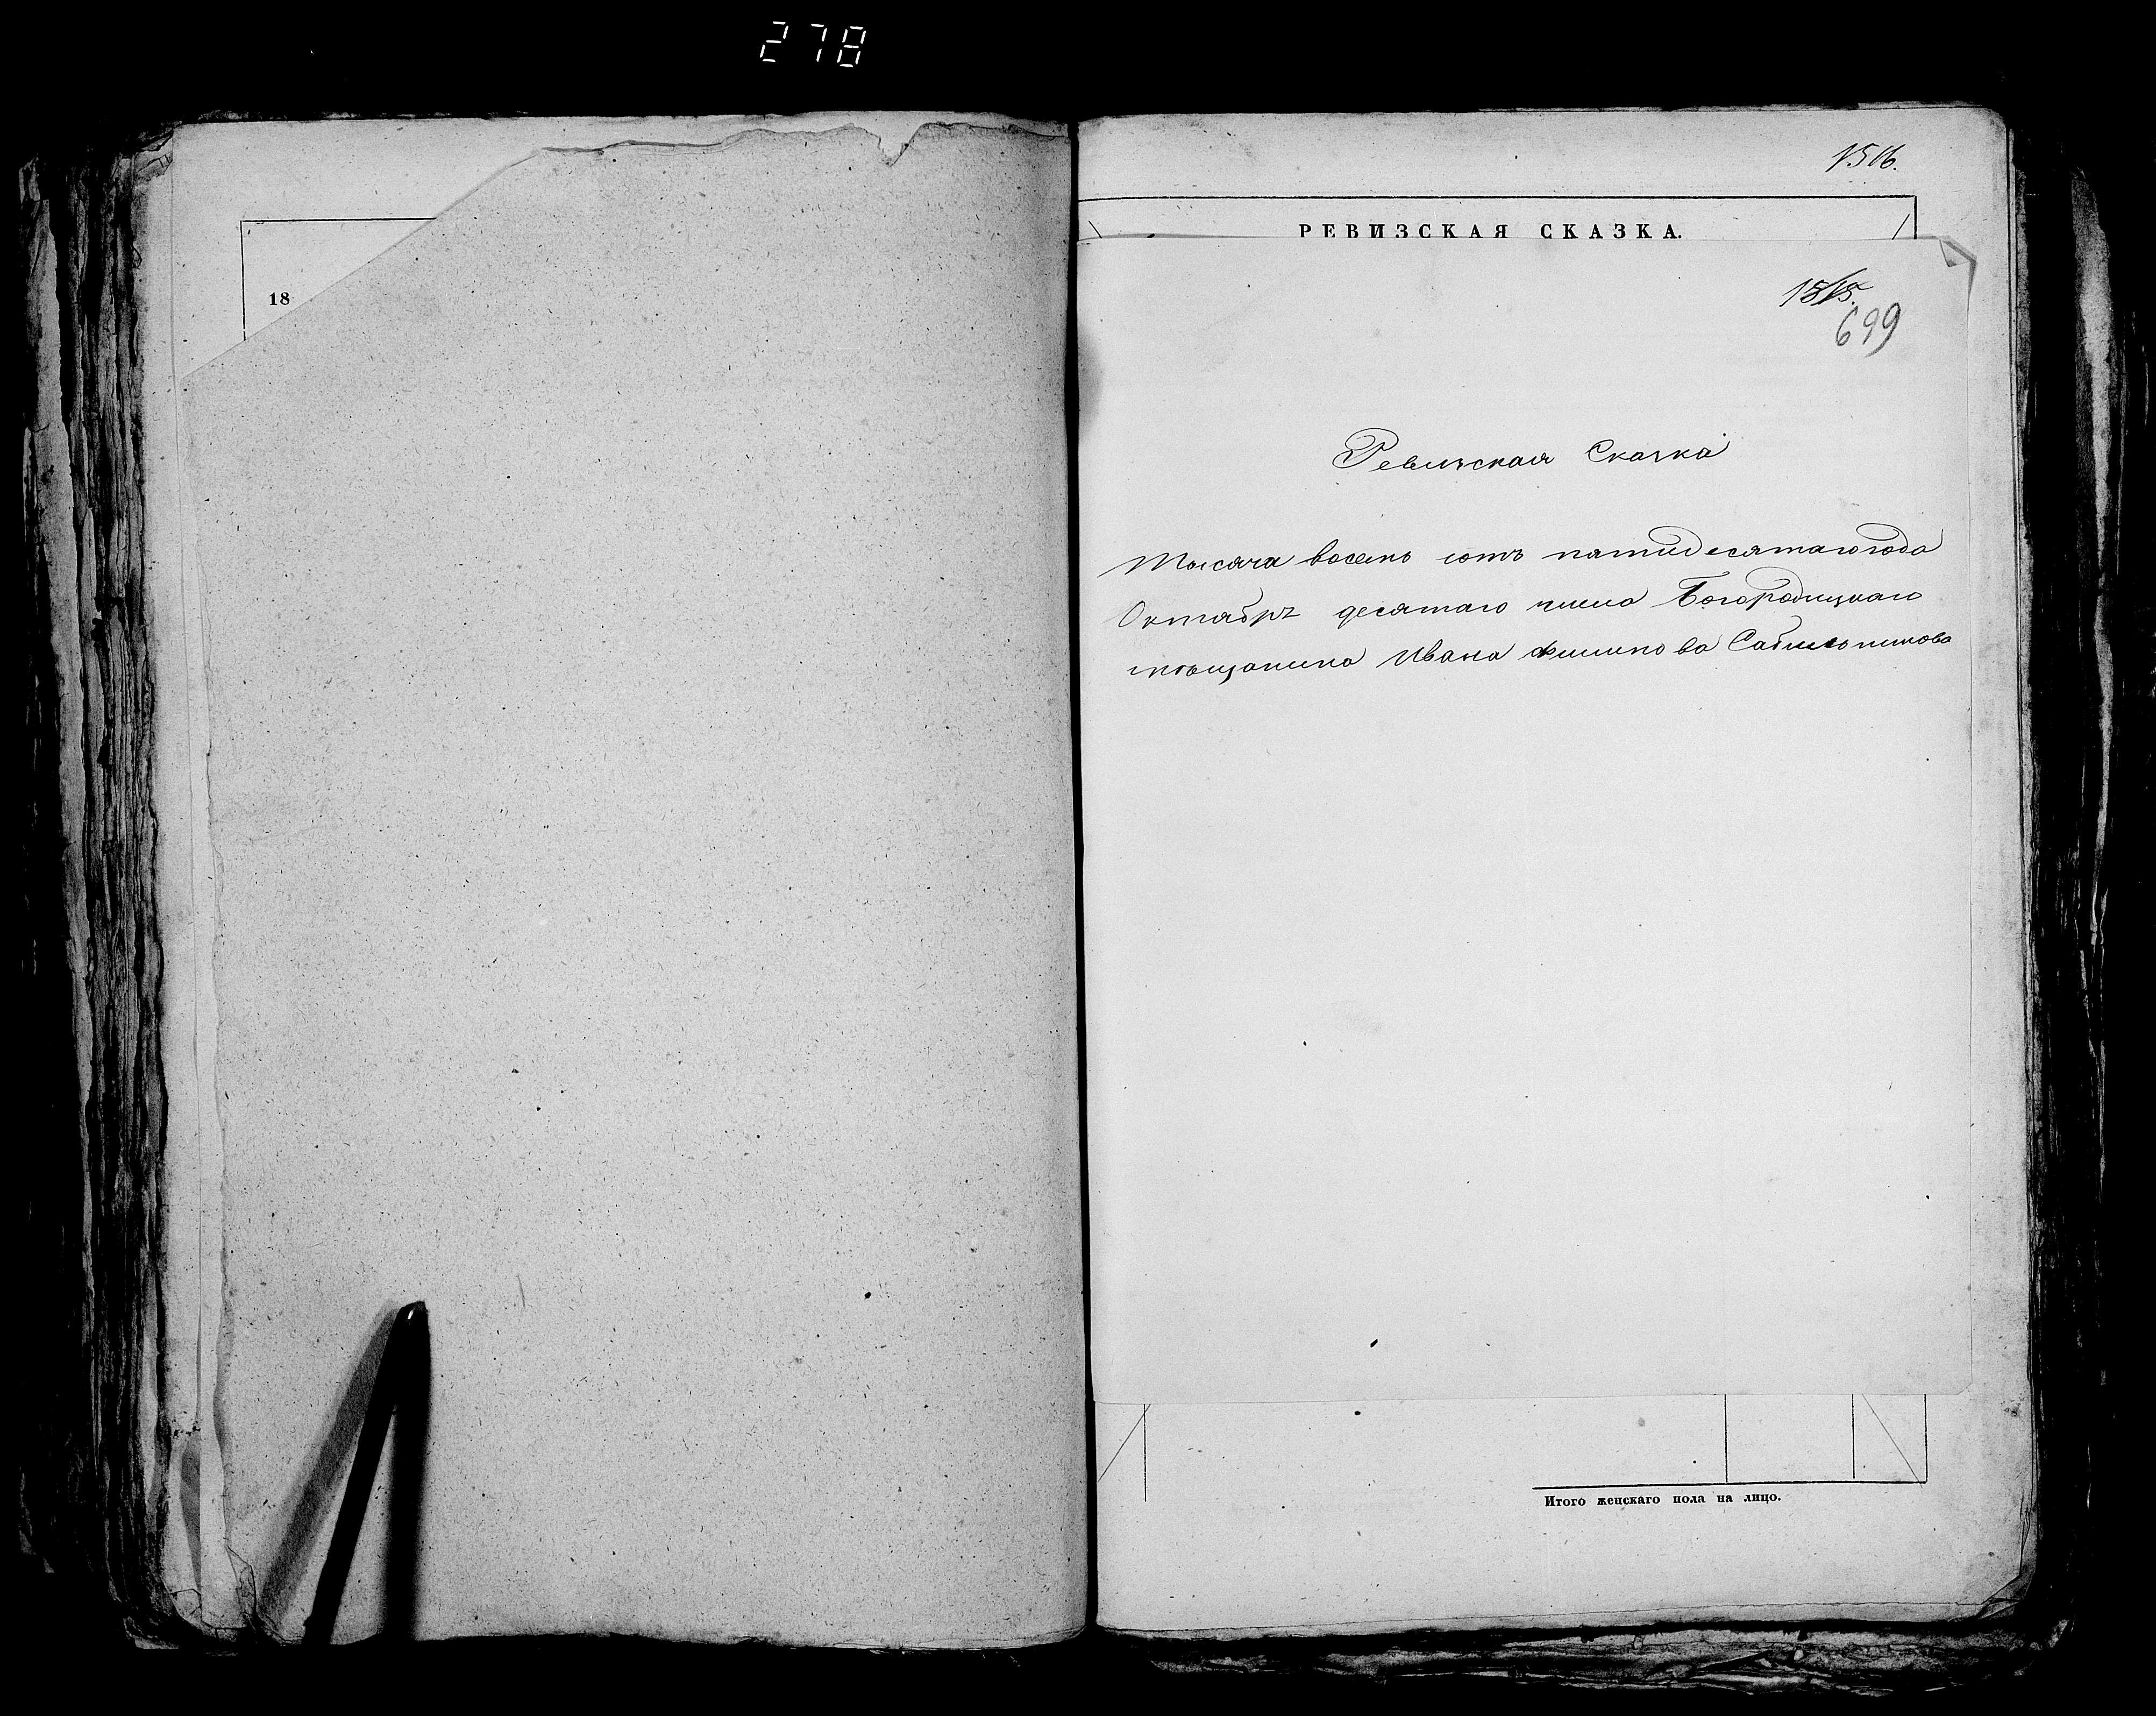 278
18
1516.
РЕВИЗСКАЯ СКАЗКА.
1515.
699
Ревизская Сказка
Тысяча восемь сотъ пятидесятаго года
Октября десятаго числа Богородицкаго
мѣщанина Ивана Филипова
Итого женскаго пола на лицо.